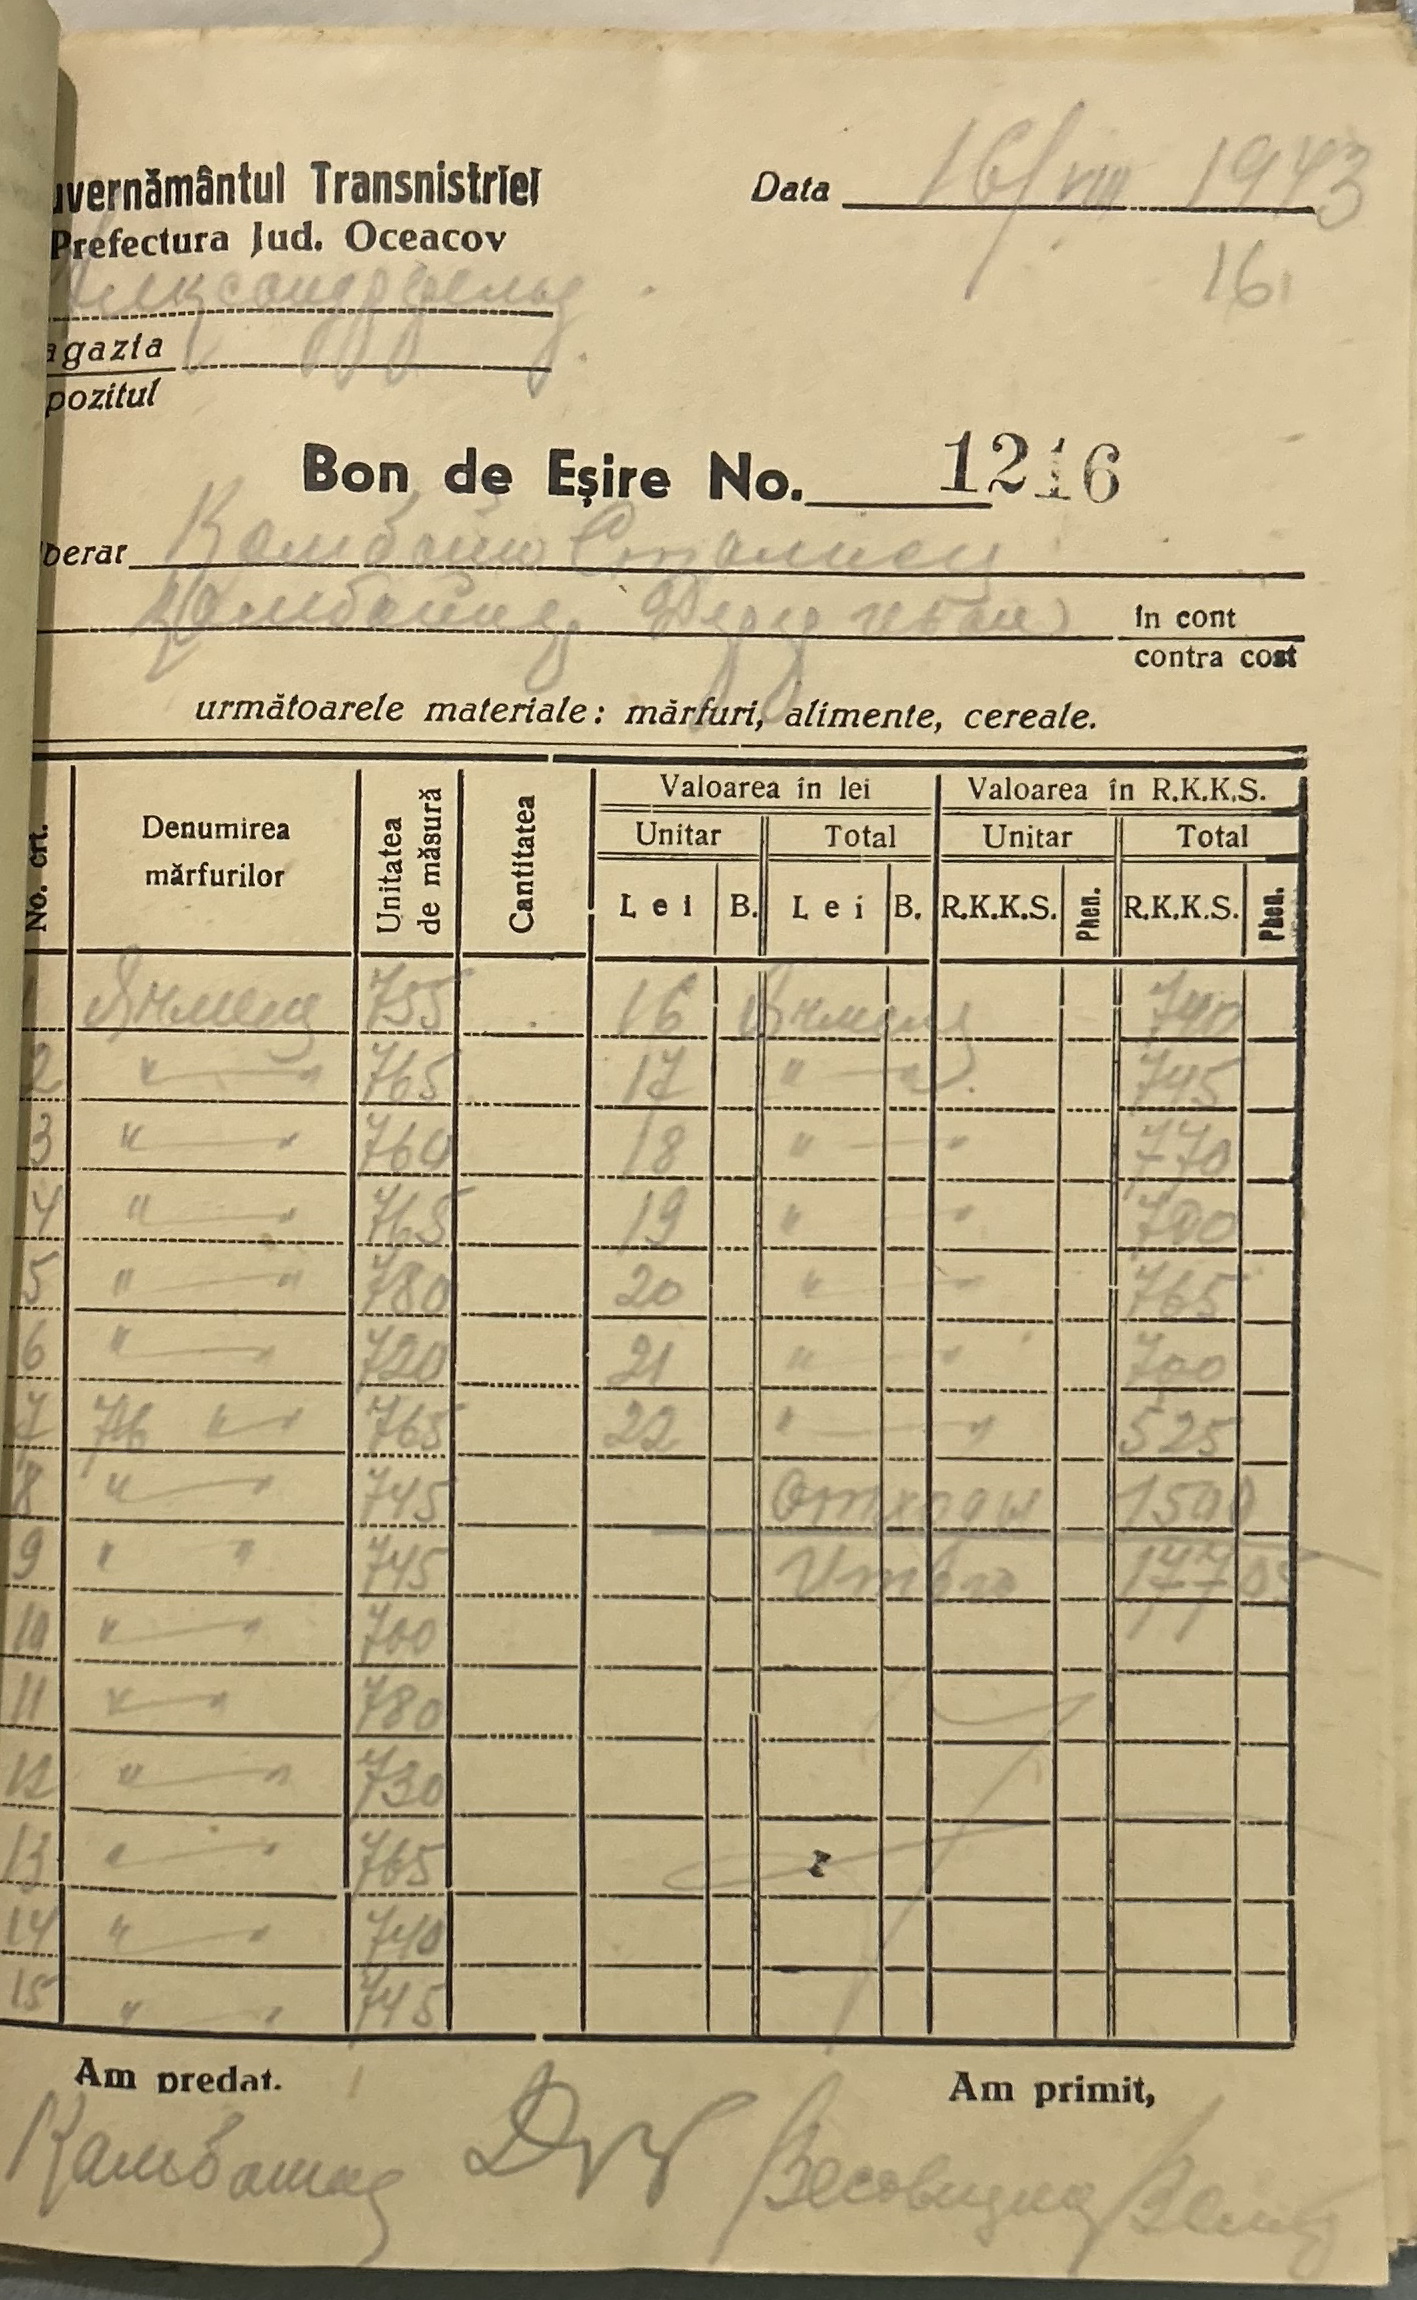 uvernământul Transnistriei
Prefectura Jud. Oceacov
Data 16/VIII 1943
16
Александрфельд
agazia
pozitul
Bon de Eşire No. 1216
berat Комбайн Сталинец
în cont
contra cost
următoarele materiale: mărfuri, alimente, cereale.
No. crt. Denumirea mărfurilor Unitatea de măsură Cantitatea Valoarea în lei Valoarea în R.K.K.S.
Unitar Total Unitar Total
Lei B. Lei B. R.K.K.S. Phen. R.K.K.S. Phen.
Ячмень 755 16 Ячмень 740
2 " — " 765 17 " — " 745
3 " — " 760 18 " — " 770
4 " — " 765 19 " — " 700
5 " — " 780 20 " — " 765
6 " — " 720 21 " — " 700
7 " — " 765 22 " — " 525
8 " — " 745 Отходы 1500
9 " " 745 Итого 17705
10 " — " 700
11 " — " 780
12 " — " 730
13 " — " 765
14 " — " 740
15 " — " 745
Am predat. Am primit,
Весовщик